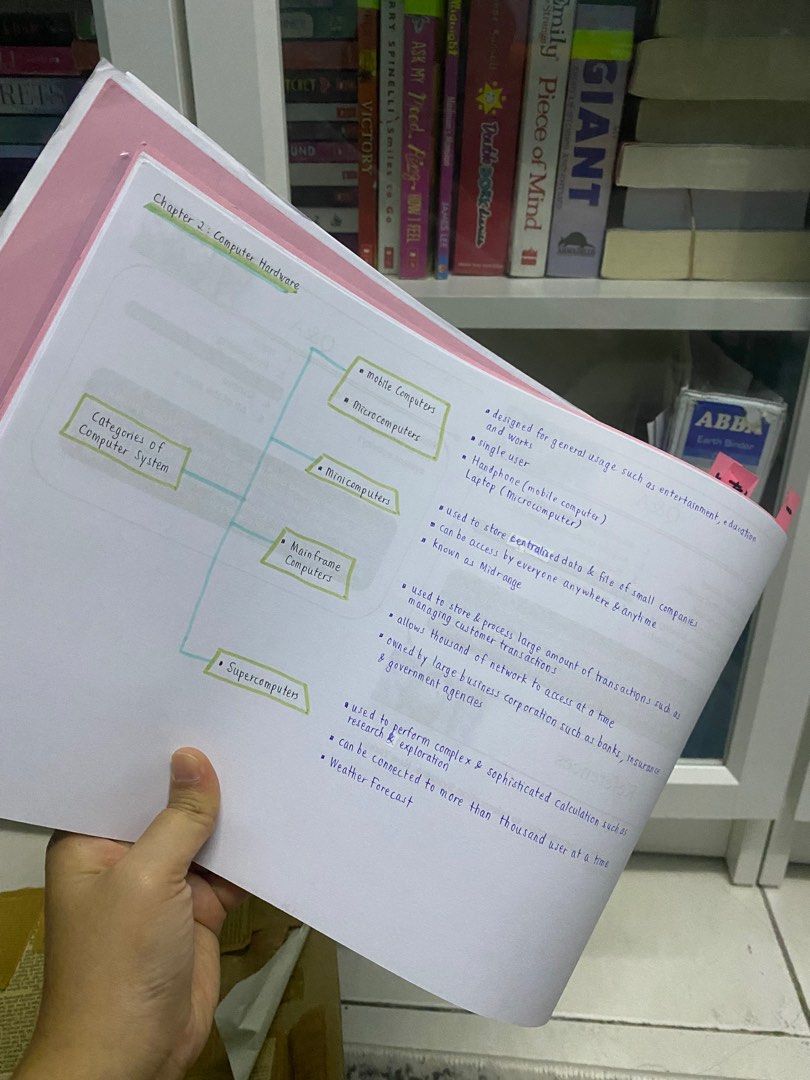 RETS
UND
VICTORY
RRY SPINELLI Smiles to Go
ASK MY
HOW I FEEL
Midnight
JAMES LEE
Emily
Piece of Mind
GIANT
ABBA
Earth Binder
Chapter 2 : Computer Hardware
Categories of
Computer System
▪ mobile Computers
▪ microcomputers
▪ designed for general usage such as entertainment, education
and works
▪ single user
▪ Handphone (mobile computer)
Laptop (Microcumputer)
▪ Minicomputers
▪ used to store centralised data & file of small companies
▪ can be access by everyone anywhere & anytime
▪ known as Midrange
▪ Mainframe
Computers
▪ used to store & process large amount of transactions such as
managing customer transactions
▪ allows thousand of network to access at a time
▪ owned by large business corporation such as banks, insurance
& government agencies
▪ Supercomputers
▪ used to perform complex & sophisticated calculation such as
research & exploration
▪ can be connected to more than thousand user at a time
▪ Weather Forecast